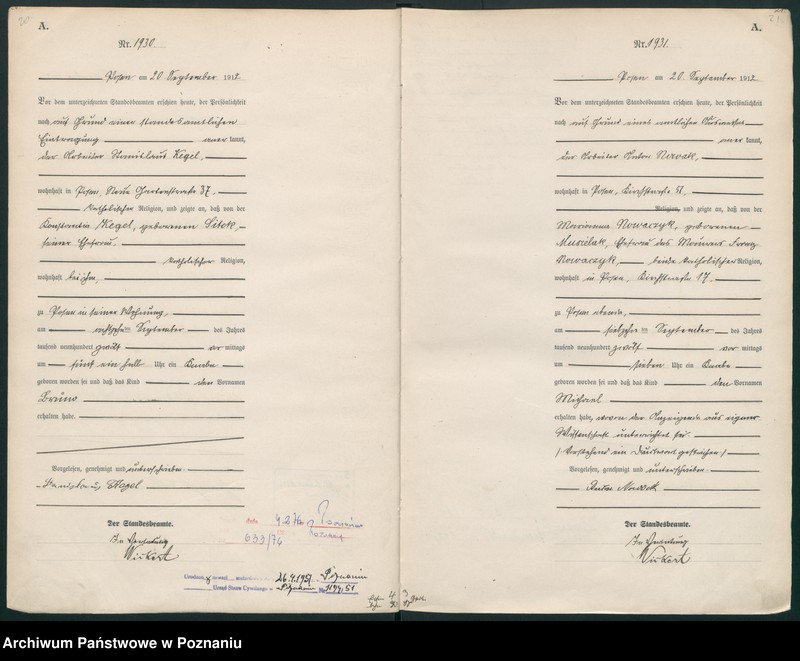 A.
Nr. 1930.
Posen am 20. September 1912
Vor dem unterzeichneten Standesbeamten erschien heute, der Persönlichkeit
nach auf Grund einer standesamtlichen
Eintragung anerkannt,
der Arbeiter Stanislaus Kegel,
wohnhaft in Posen, Neue Gartenstraße 37,
katholischer Religion, und zeigte an, daß von der
Konstantia Kegel, geborenen Sitek,
seiner Ehefrau,
katholischer Religion,
wohnhaft bei ihm,
zu Posen in seiner Wohnung,
am September des Jahres
tausend neunhundert zwölf vor mittags
um fünf ein halb Uhr ein Knabe
geboren worden sei und daß das Kind den Vornamen
Bruno
erhalten habe.
Vorgelesen, genehmigt und unterschrieben
Stanislaus Kegel
Der Standesbeamte.
In Vertretung
Wickert
26.4.1951 Poznaniu
Urząd Stanu Cywilnego
A.
Nr. 1931.
Posen am 20. September 1912
Vor dem unterzeichneten Standesbeamten erschien heute, der Persönlichkeit
nach auf Grund eines amtlichen Ausweises
anerkannt,
der Arbeiter Anton Nowak,
wohnhaft in Posen, Kirchstraße 51,
Religion, und zeigte an, daß von der
Marianna Nowaczyk, geborenen
Musielak, Ehefrau des Maurers Franz
Nowaczyk, beide katholischer Religion,
wohnhaft in Posen, Kirchstraße 17,
zu Posen ebenda,
am siebzehn ten September des Jahres
tausend neunhundert zwölf vor mittags
um sieben Uhr ein Knabe
geboren worden sei und daß das Kind den Vornamen
Michael
erhalten habe, wovon der Anzeigende aus eigener
Wissenschaft unterrichtet sei.
(Vorstehend ein Druckwort gestrichen)
Vorgelesen, genehmigt und unterschrieben
Anton Nowak
Der Standesbeamte.
In Vertretung
Wickert
Archiwum Państwowe w Poznaniu